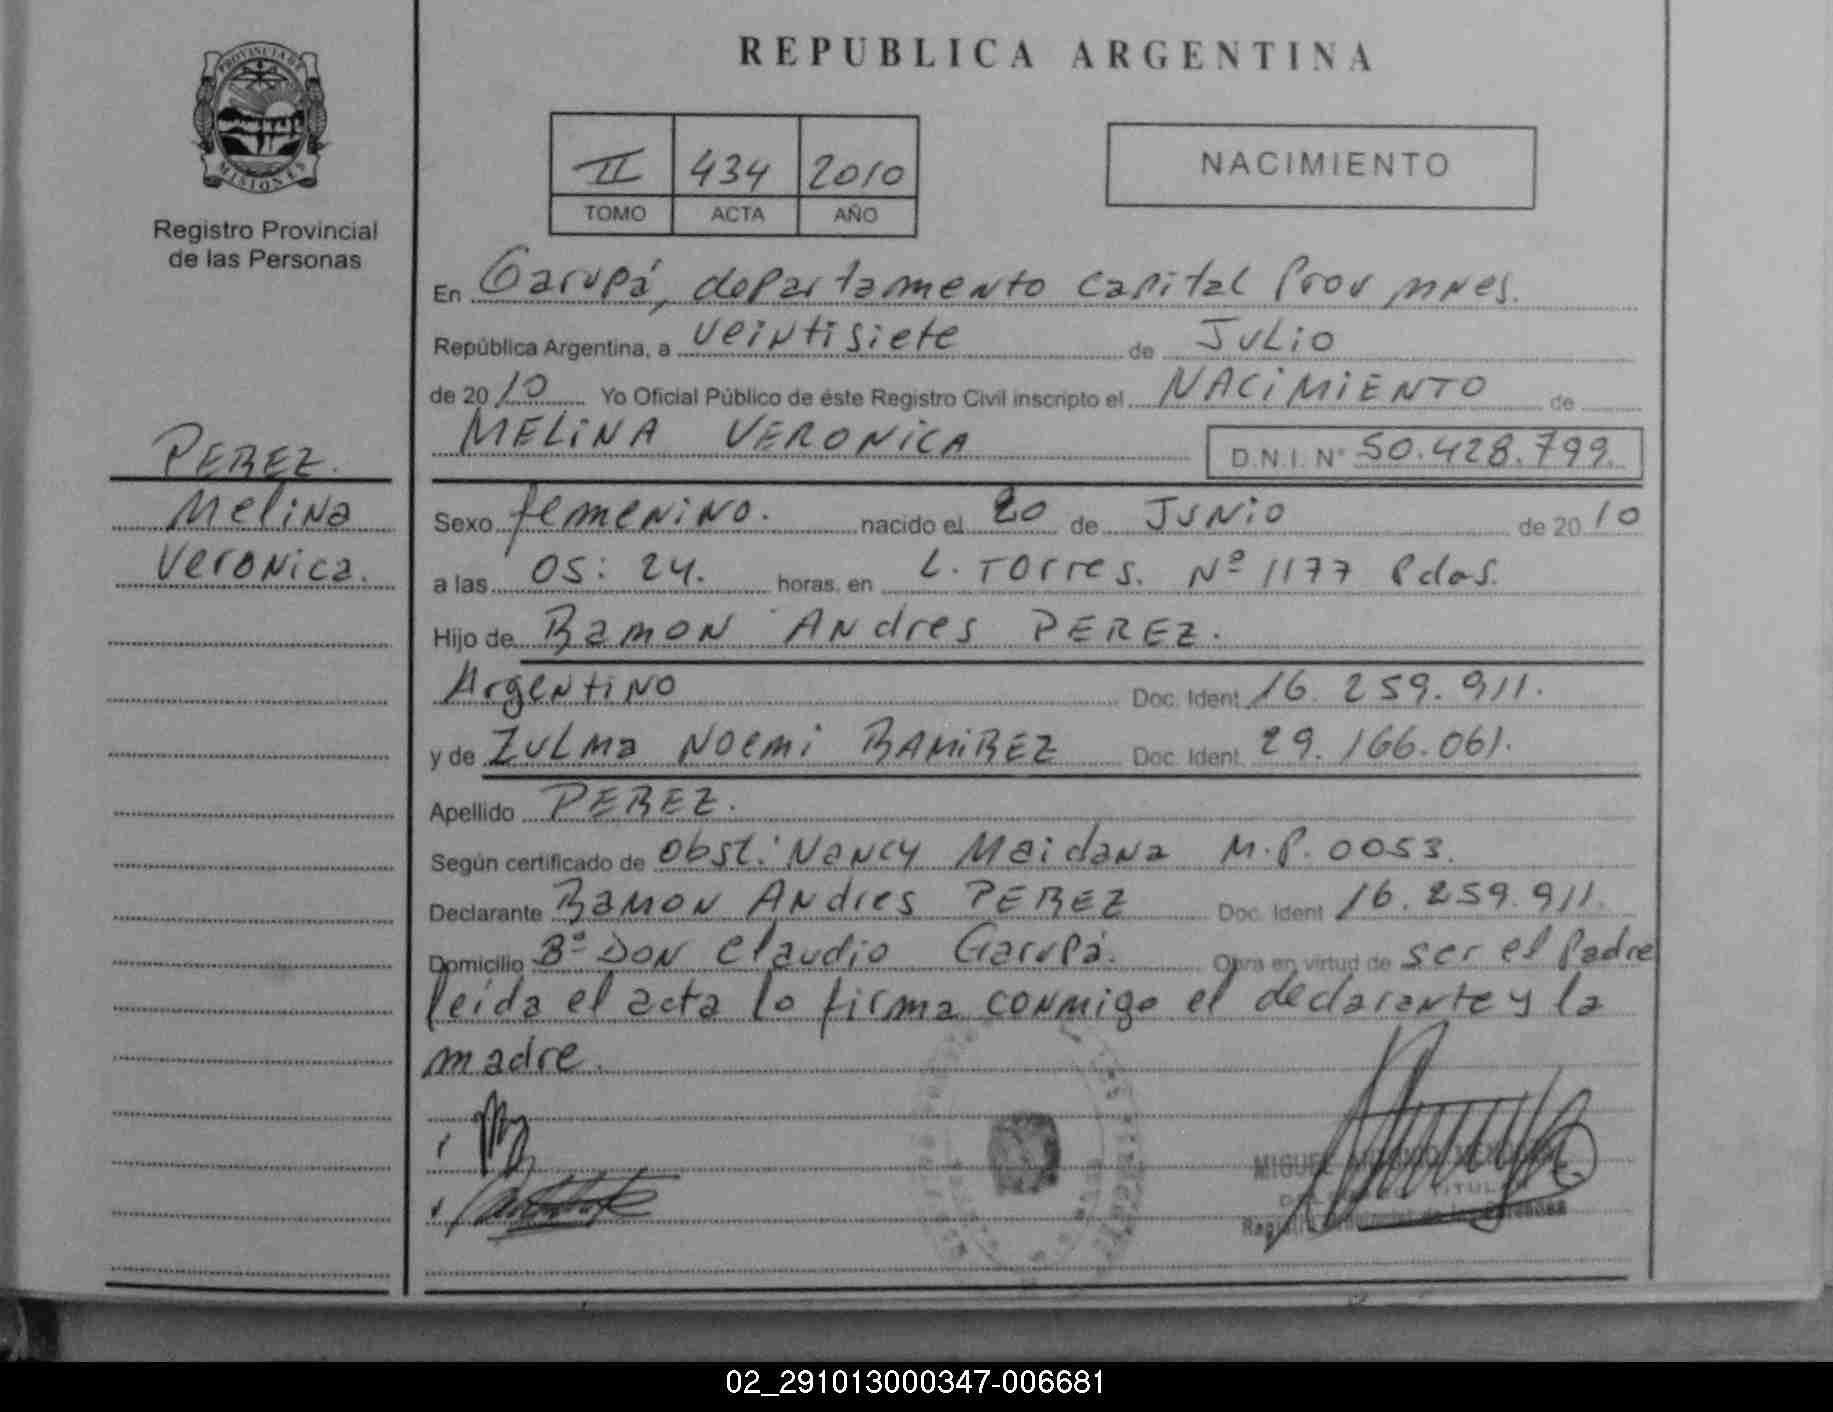 PROVINCIA DE
MISIONES
Registro Provincial
de las Personas
PEREZ.
Melina
Veronica.
REPUBLICA ARGENTINA
II 434 2010
TOMO ACTA AÑO
NACIMIENTO
En Garupá, departamento capital Prov mnes.
República Argentina, a veintisiete de Julio
de 2010 Yo Oficial Público de éste Registro Civil inscripto el NACIMIENTO de
MELINA VERONICA D.N.I. N° 50.428.799.
Sexo femenino. nacido el 20 de Junio de 2010
a las 05:24. horas, en L. Torres. Nº 1177 Pdas.
Hijo de Ramon Andres PEREZ.
Argentino Doc. Ident 16.259.911.
y de Zulma Noemi RAMIREZ Doc. Ident. 29.166.061.
Apellido PEREZ.
Según certificado de obst. Nancy Maidana M.P. 0053.
Declarante Ramon Andres PEREZ Doc. Ident 16.259.911.
Domicilio Bº Don Claudio Garupá. Obra en virtud de ser el Padre
leida el acta lo firma conmigo el declarante y la
madre.
MIGUEL
TITULAR
Registro Provincial de las Personas
02_291013000347-006681